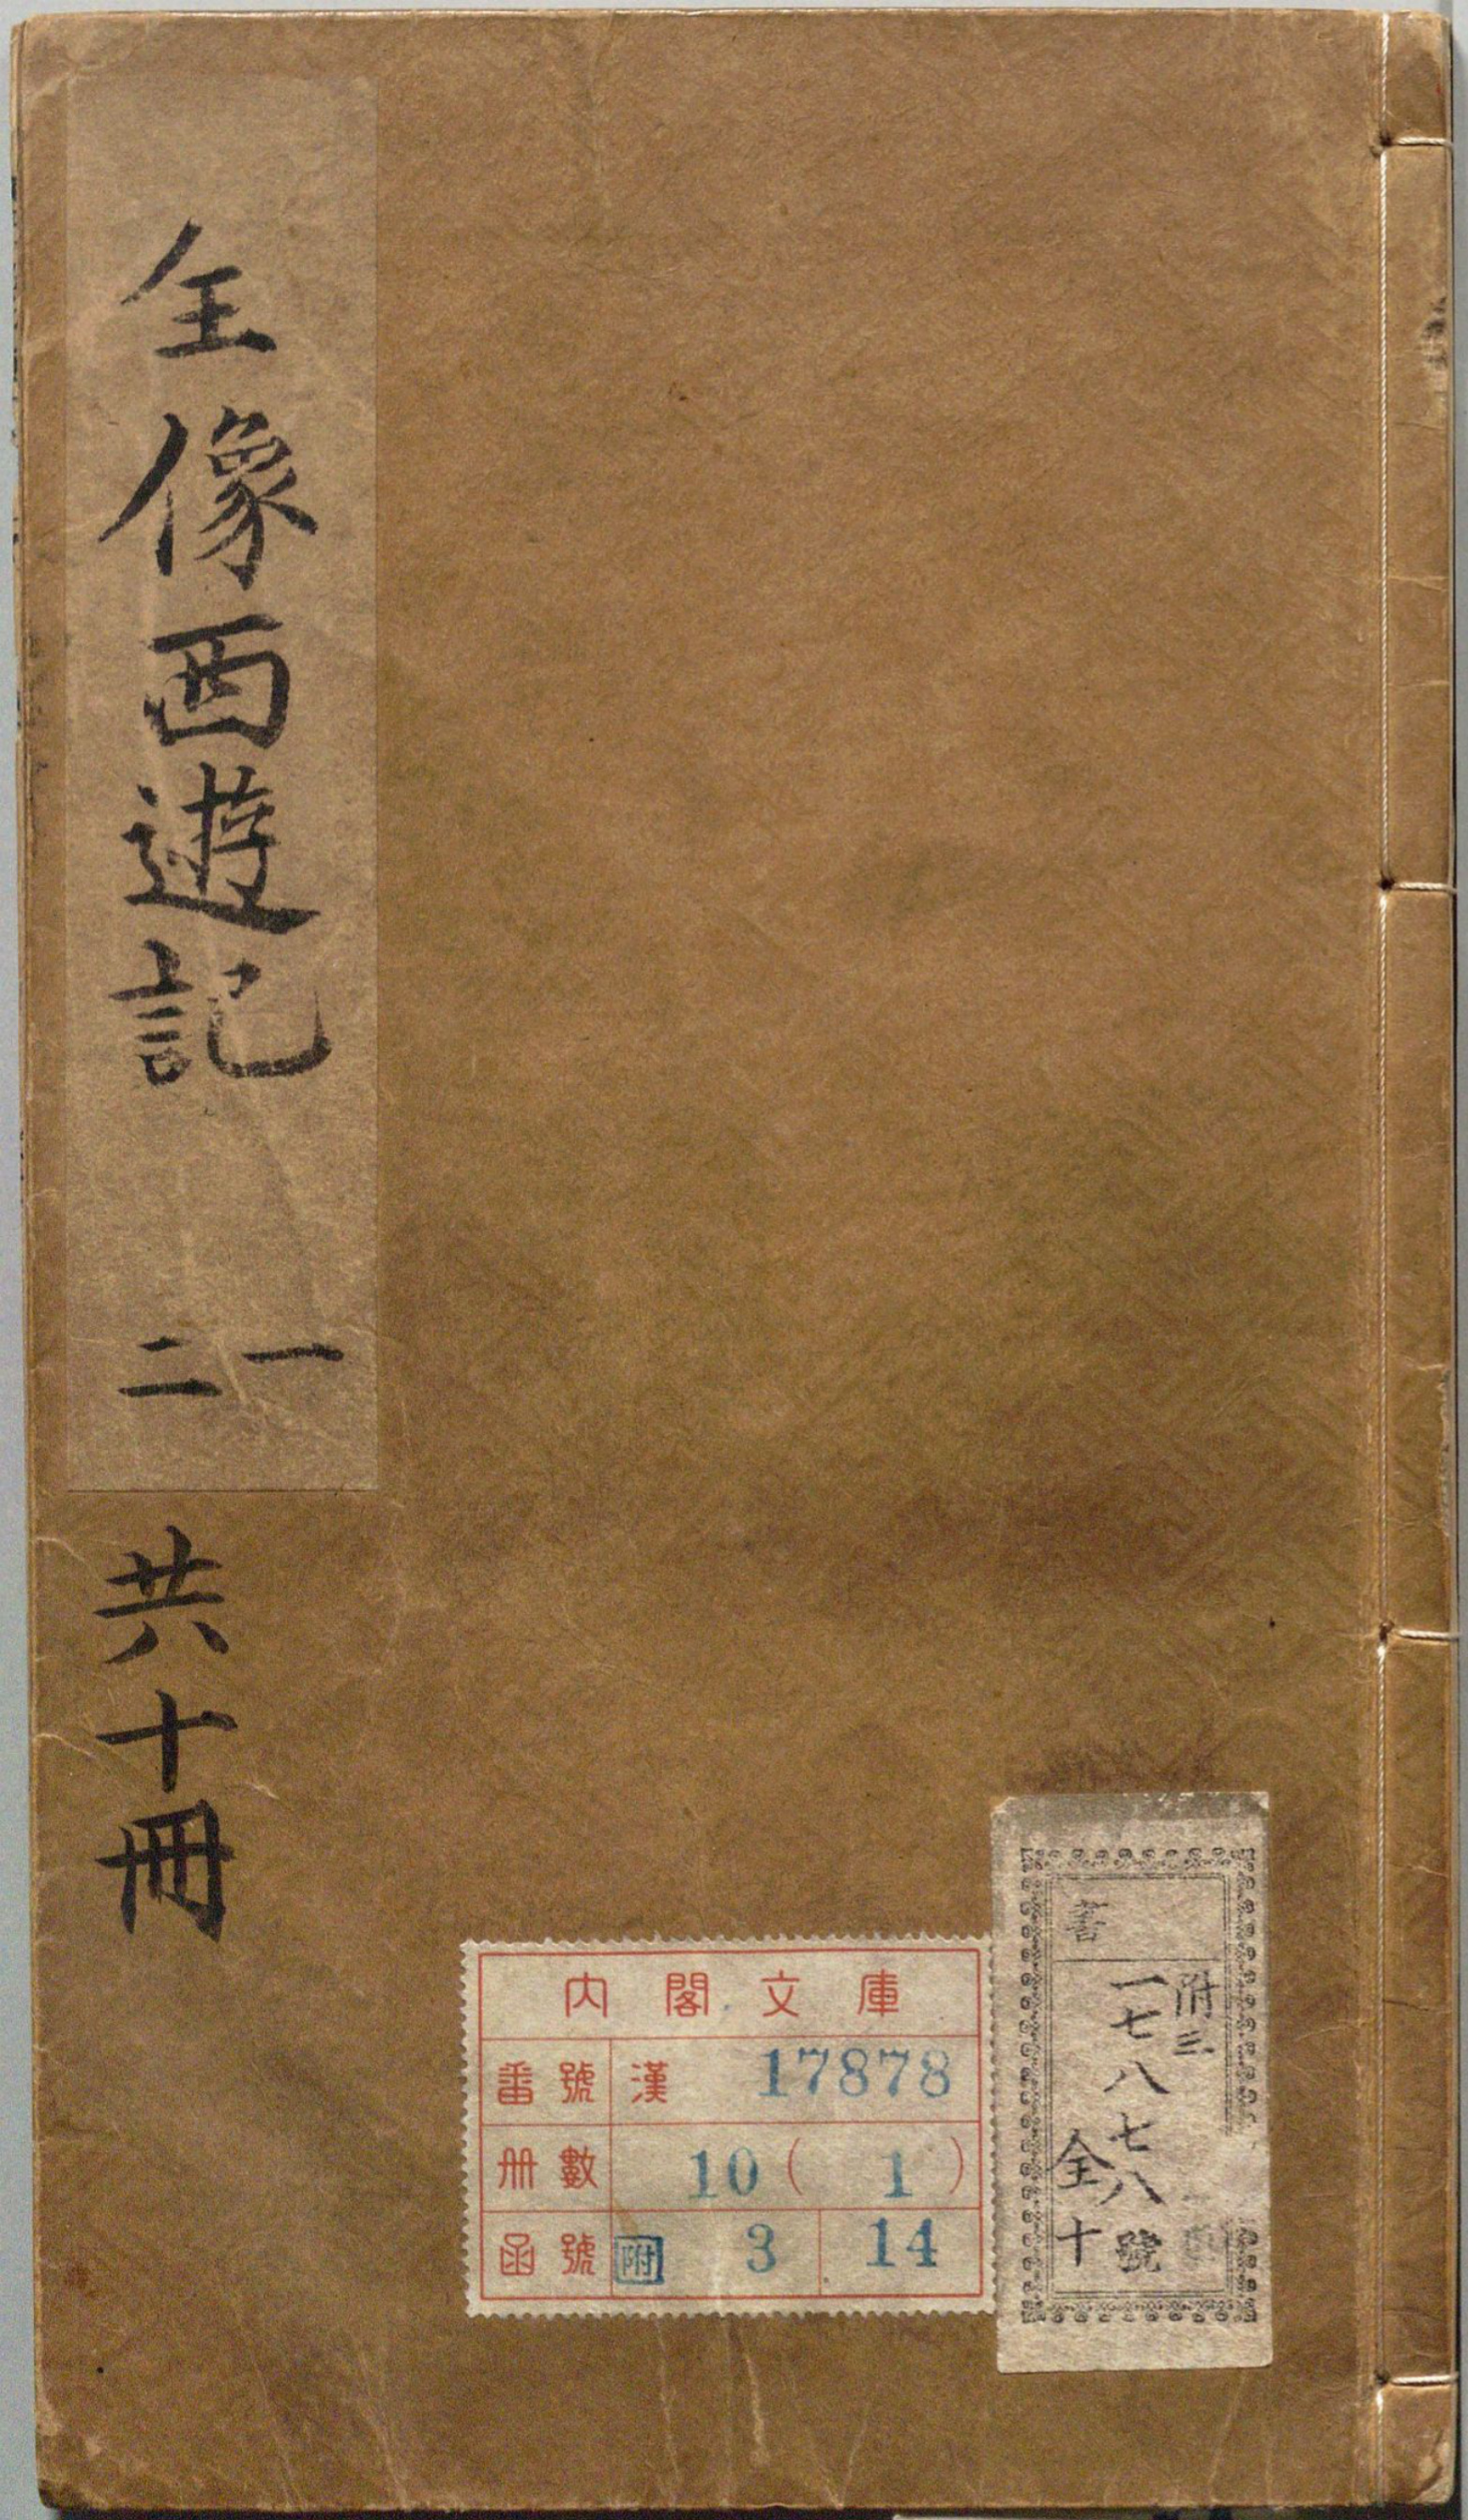 全像西遊記
一
二
共十冊
内閣文庫
番號 漢 17878
冊數 10 ( 1 )
函號 附 3 14
附三
一七八七八號
全十